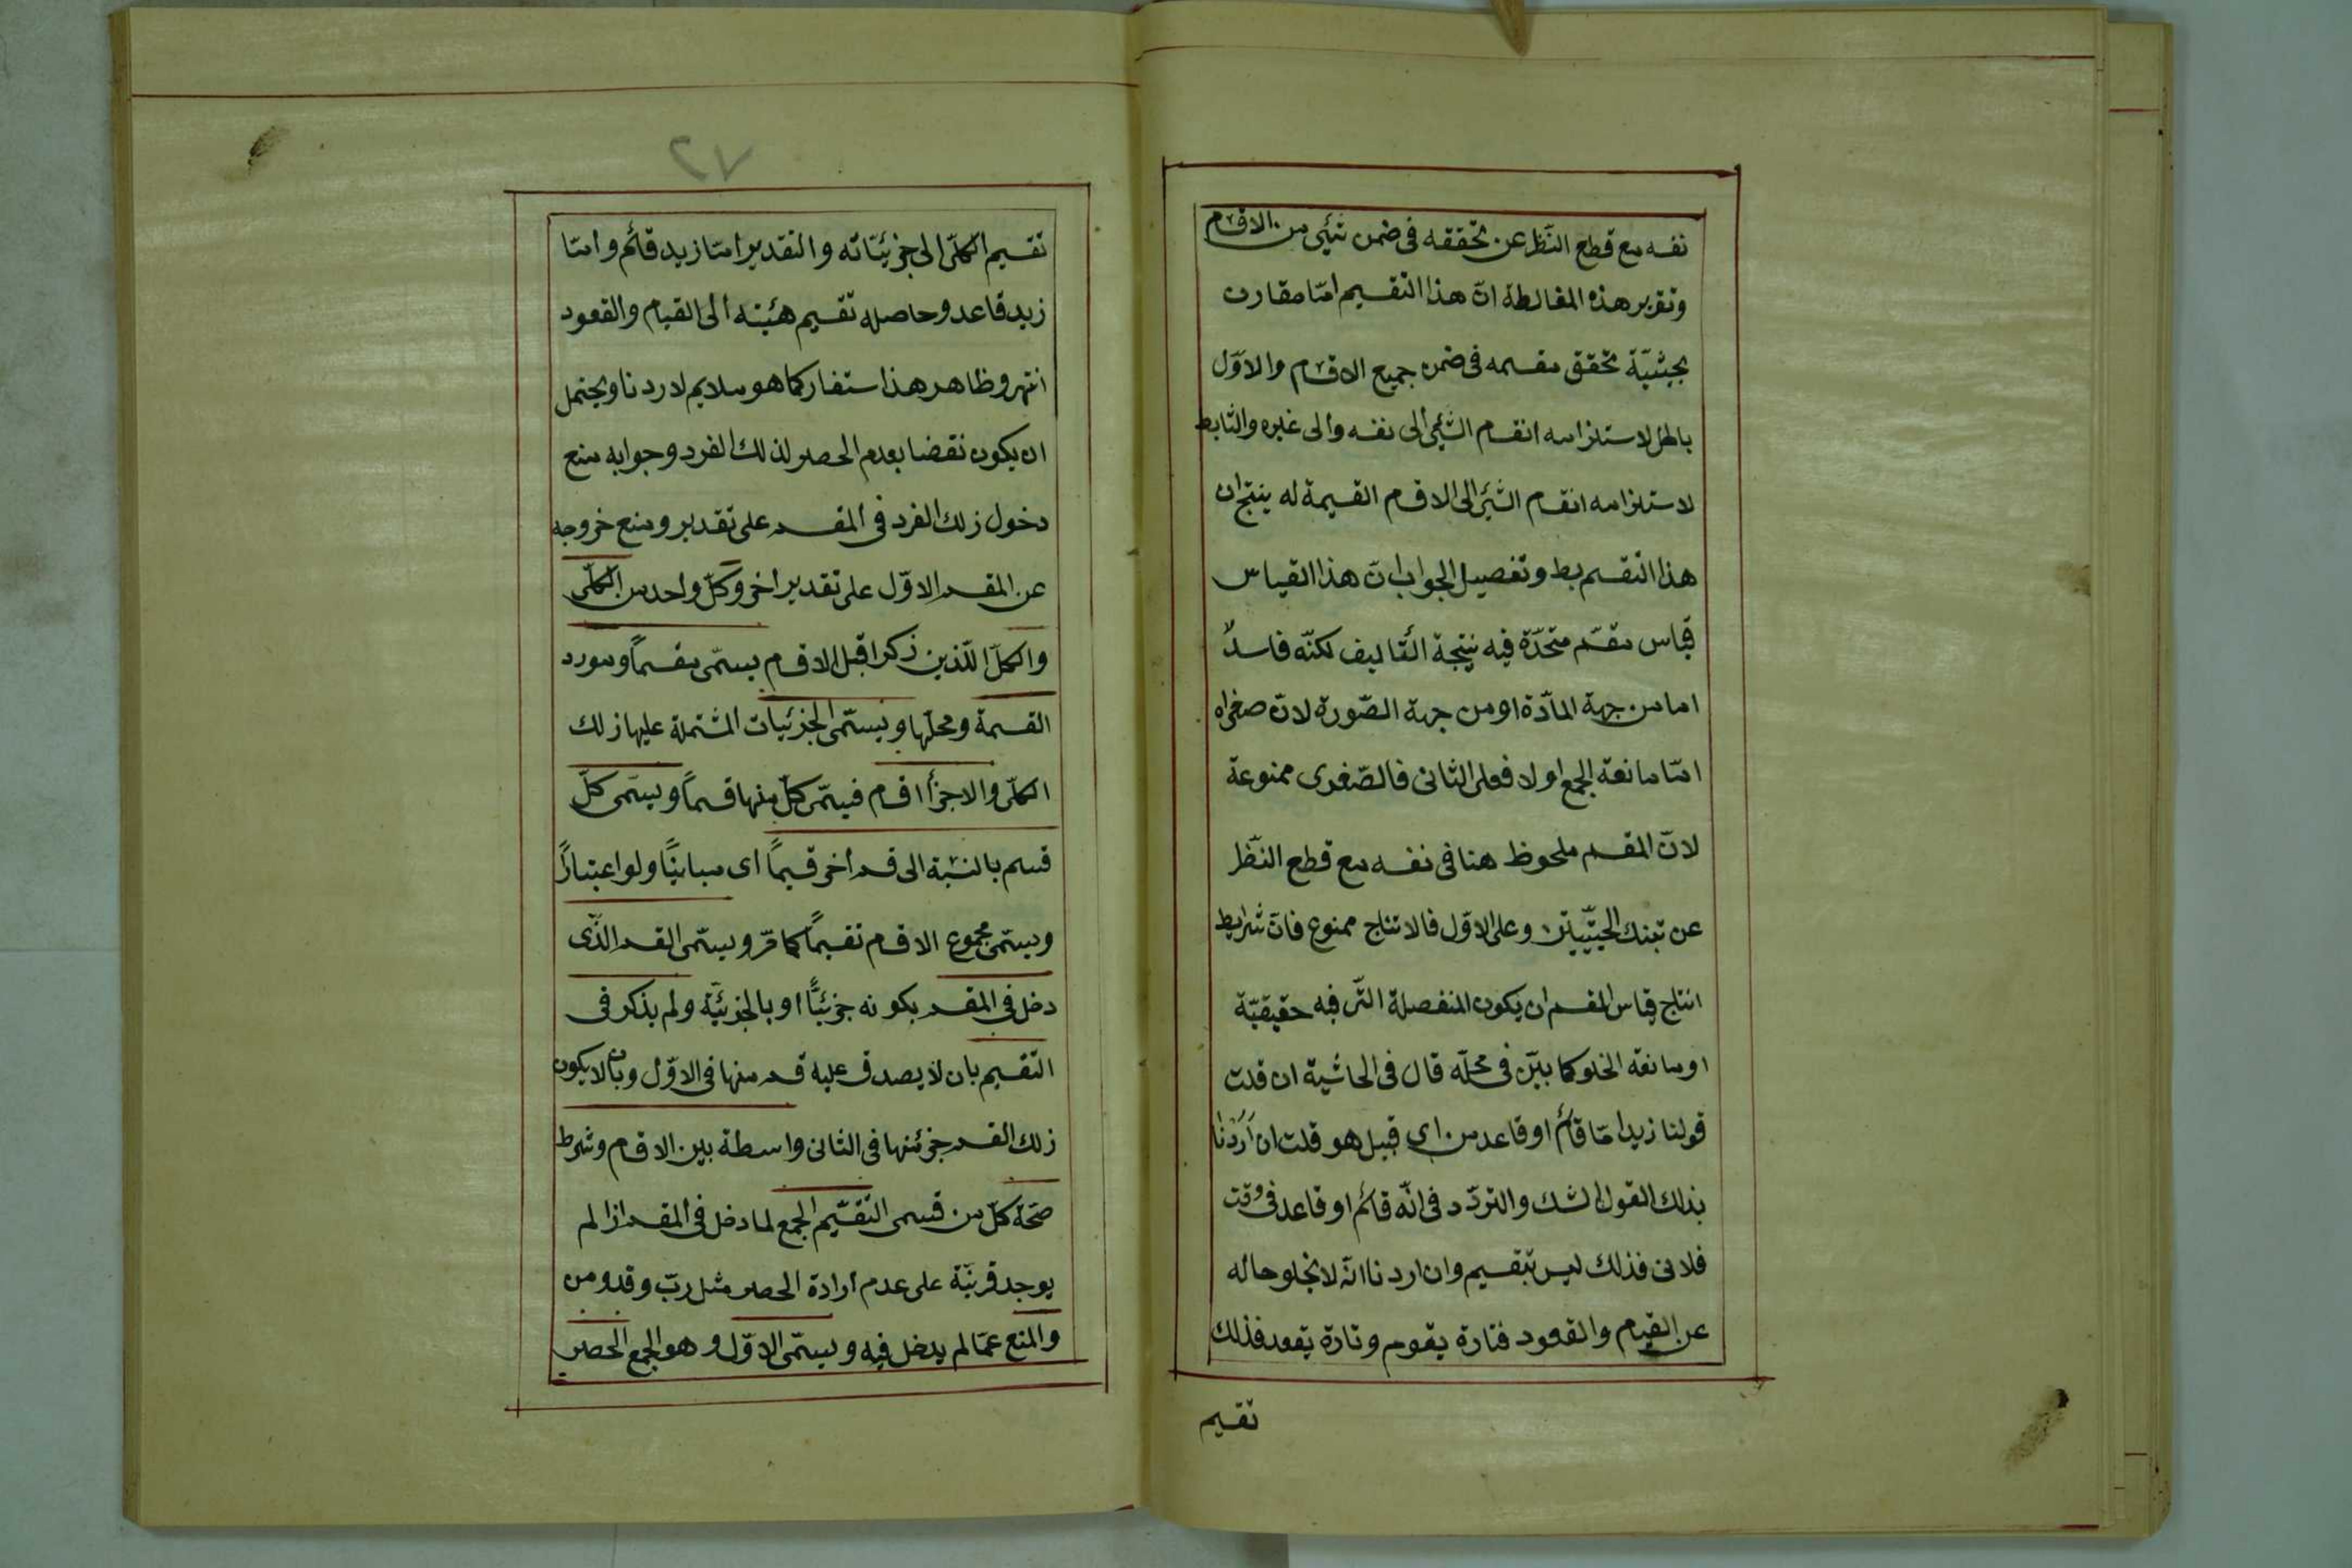 نفسه مع قطع النّظر عن تحققه فى ضمن شئى من الاقسام
وتقرير هذه المغالطة انّ هذا التقسيم امّا مقارن
بحيثيّة تحقق مقسمه فى ضمن جميع الاقسام والاوّل
باطل لاستلزامه انقسام الشئى الى نفسه والى غيره والثا بط
لاستلزامه انقسام الشئى الى الاقسام القسيمة له ينتج ان
هذا التقسيم بط وتفصيل الجواب انّ هذا القياس
قياس مقسّم متحدّة فيه نتيجة التّاليف لكنّه فاسدٌ
اما من جهة المادّة او من جهة الصّورة لانّ صغراه
امّا مانعة الجمع او لا فعلى الثانى فالصّغرى ممنوعة
لانّ المقسم ملحوظ هنا فى نفسه مع قطع النّظر
عن تينك الحيثيّتين وعلى الاوّل فالانتاج ممنوع فانّ شرايط
انتاج قياس المقسم ان يكون المنفصلة الّتى فيه حقيقيّة
او مانعة الخلو كما بيّن فى محلّه قال فى الحاشية ان قلت
قولنا زيد امّا قائم او قاعد من اى قبيل هو قلت ان اَرَدْنا
بذلك القول الشك والتردّد فى انّه قائم او قاعد فى وقت
فلانى فذلك ليس بتقسيم وان اردنا انّه لا يخلو حاله
عن القيام والقعود فتارة يقوم وتارة يقعد فذلك
تقسيم
٧٢
تقسيم الكلّى الى جزئيّاته والتقدير امّا زيد قائم وامّا
زيد قاعد وحاصله تقسيم هيئته الى القيام والقعود
انتهر وظاهر هذا ستفار كما هو ملايم لاردنا ويحتمل
ان يكون نقضا بعدم الحصر لذلك الفرد وجوابه منع
دخول ذلك الفرد فى المقسم على تقدير ومنع خروجه
عن المقسم الاوّل على تقدير اخر وكلّ واحد من الكلّى
والكلّ اللّذين ذكرا قبل الاقسام يسمّى مقسماً ومورد
القسمة ومحلّها ويسمّى الجزئيات المشتملة عليها ذلك
الكلّى والاجزأ اقسام فيسمّى كلّ منها قسماً ويسمّى كلّ
قسم بالنسبة الى قسم أخر قسيماً اى مبايناً ولو اعتباراً
ويسمّى مجموع الاقسام تقسيماً كما مّر ويسمّى القسم الّذى
دخل فى المقسم بكونه جزئيًّا او بالجزئيّة ولم يذكر فى
التّقسيم بان لا يصدق عليه قسم منها فى الاوّل وبان لا يكون
ذلك القسم جزئ منها فى الثانى واسطة بين الاقسام وشرط
صّحة كلّ من قسمى التقسّيم الجمع لما دخل فى المقسم اذا لم
يوجد قرينّة على عدم أرادة الحصر مثل ربّ وقد ومن
والمنع عمّا لم يدخل فيه ويسمّى الاوّل وهو الجمع الحصر